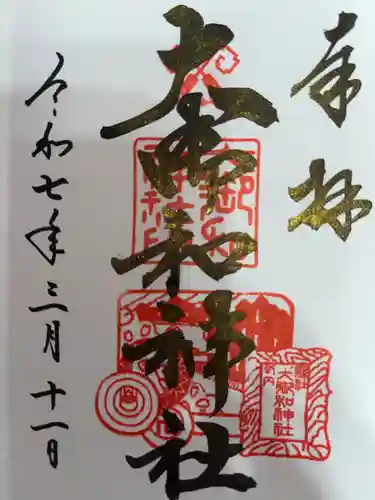 奉拝
大御和神社
令和七年三月十一日
大御和神社